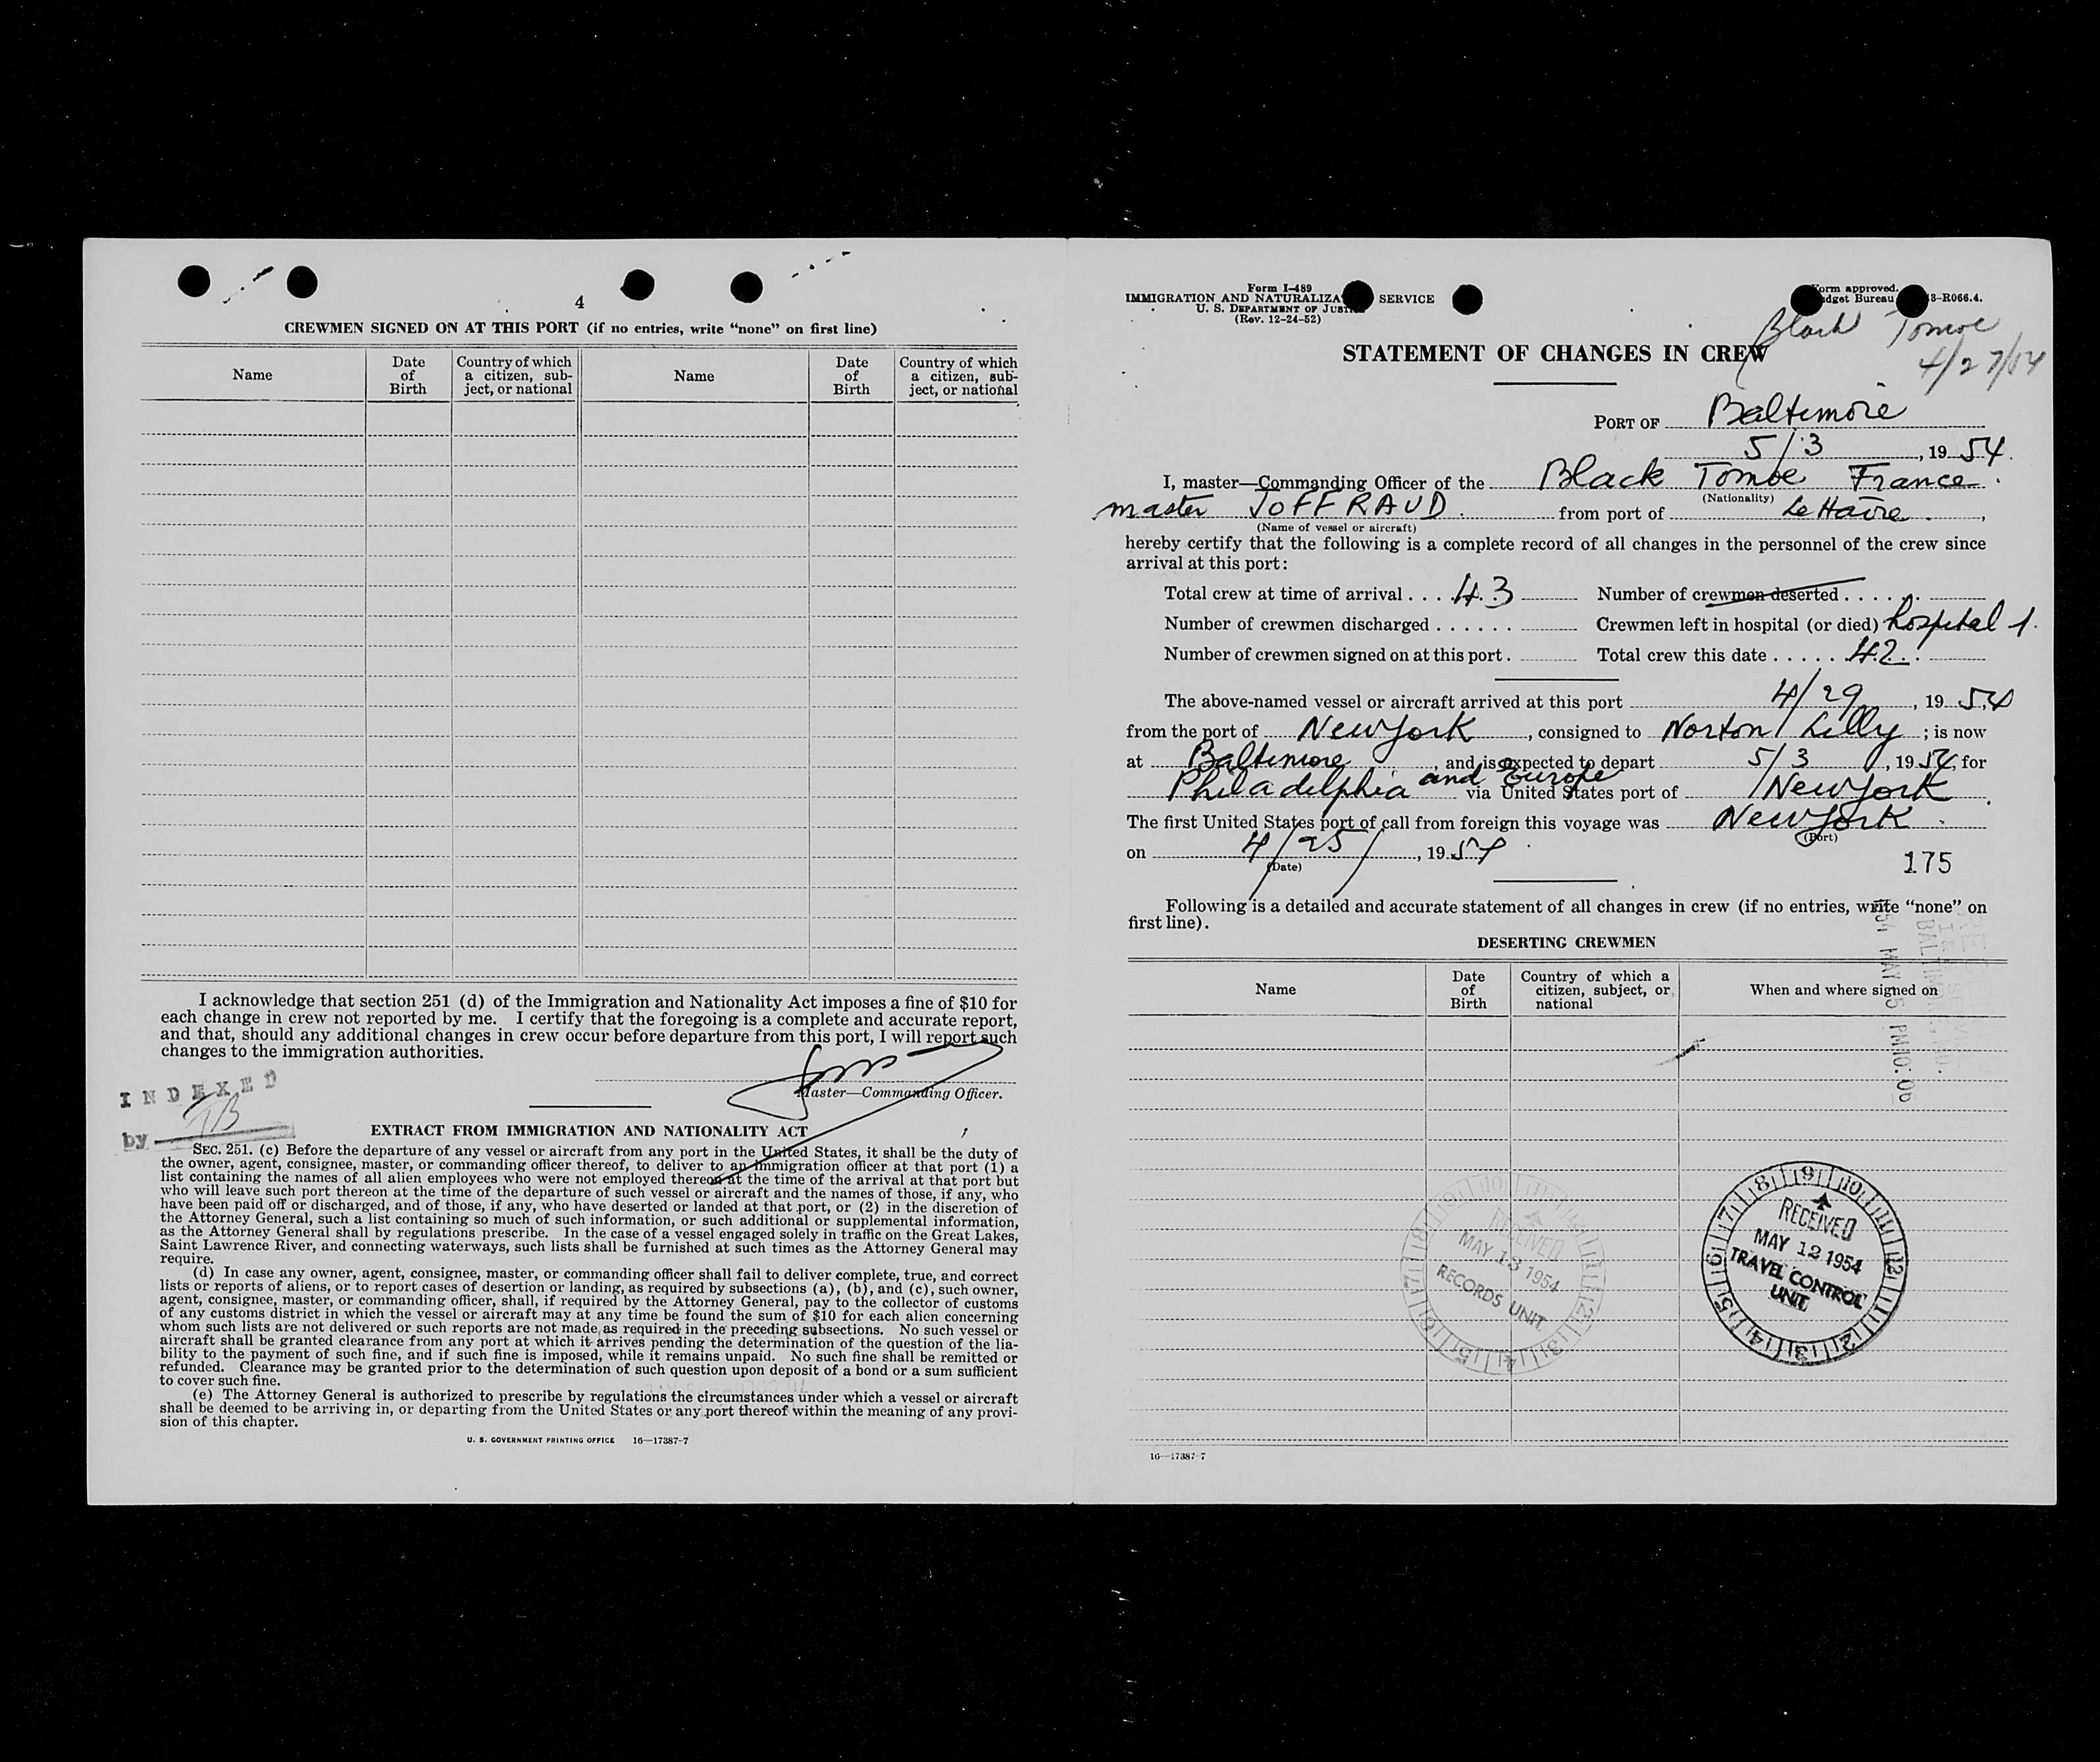 4
CREWMEN SIGNED ON AT THIS PORT (if no entries, write “none” on first line)
Name
Date of Birth
Country of which a citizen, sub-ject, or national
Name
Date of Birth
Country of which a citizen, sub-ject, or national
I acknowledge that section 251 (d) of the Immigration and Nationality Act imposes a fine of $10 for
each change in crew not reported by me. I certify that the foregoing is a complete and accurate report,
and that, should any additional changes in crew occur before departure from this port, I will report such
changes to the immigration authorities.
Master—Commanding Officer.
INDEXED
by TB
EXTRACT FROM IMMIGRATION AND NATIONALITY ACT
SEC. 251. (c) Before the departure of any vessel or aircraft from any port in the United States, it shall be the duty of
the owner, agent, consignee, master, or commanding officer thereof, to deliver to an immigration officer at that port (1) a
list containing the names of all alien employees who were not employed thereon at the time of the arrival at that port but
who will leave such port thereon at the time of the departure of such vessel or aircraft and the names of those, if any, who
have been paid off or discharged, and of those, if any, who have deserted or landed at that port, or (2) in the discretion of
the Attorney General, such a list containing so much of such information, or such additional or supplemental information,
as the Attorney General shall by regulations prescribe. In the case of a vessel engaged solely in traffic on the Great Lakes,
Saint Lawrence River, and connecting waterways, such lists shall be furnished at such times as the Attorney General may
require.
(d) In case any owner, agent, consignee, master, or commanding officer shall fail to deliver complete, true, and correct
lists or reports of aliens, or to report cases of desertion or landing, as required by subsections (a), (b), and (c), such owner,
agent, consignee, master, or commanding officer, shall, if required by the Attorney General, pay to the collector of customs
of any customs district in which the vessel or aircraft may at any time be found the sum of $10 for each alien concerning
whom such lists are not delivered or such reports are not made as required in the preceding subsections. No such vessel or
aircraft shall be granted clearance from any port at which it arrives pending the determination of the question of the lia-
bility to the payment of such fine, and if such fine is imposed, while it remains unpaid. No such fine shall be remitted or
refunded. Clearance may be granted prior to the determination of such question upon deposit of a bond or a sum sufficient
to cover such fine.
(e) The Attorney General is authorized to prescribe by regulations the circumstances under which a vessel or aircraft
shall be deemed to be arriving in, or departing from the United States or any port thereof within the meaning of any provi-
sion of this chapter.
U. S. GOVERNMENT PRINTING OFFICE 16—17387-7
Form I-489
IMMIGRATION AND NATURALIZA SERVICE
U. S. DEPARTMENT OF JUSTI
(Rev. 12-24-52)
orm approved.
dget Bureau 3-R066.4.
Black Tomoe
4/27/54
STATEMENT OF CHANGES IN CREW
PORT OF Baltimore
5/3, 19 54.
I, master—Commanding Officer of the Black Tomoe France
(Nationality)
master JOFFRAUD from port of Le Havre,
(Name of vessel or aircraft)
hereby certify that the following is a complete record of all changes in the personnel of the crew since
arrival at this port:
Total crew at time of arrival .... 43 Number of crewmen deserted ......
Number of crewmen discharged ...... Crewmen left in hospital (or died) hospital 1.
Number of crewmen signed on at this port. Total crew this date ..... 42
The above-named vessel or aircraft arrived at this port 4/29, 19 54
from the port of New York, consigned to Norton Lilly; is now
at Baltimore, and is expected to depart 5/3, 19 54, for
Philadelphia and Europe via United States port of New York.
The first United States port of call from foreign this voyage was New York
(Port)
on 4/25/, 19 54
(Date)
175
Following is a detailed and accurate statement of all changes in crew (if no entries, write “none” on
first line).
DESERTING CREWMEN
Name
Date of Birth
Country of which a citizen, subject, or national
When and where signed on
1954 MAY 5 PM 10:06
RECEIVED
MAY 13 1954
RECORDS UNIT
RECEIVED
MAY 12 1954
TRAVEL CONTROL
UNIT
16—17387-7